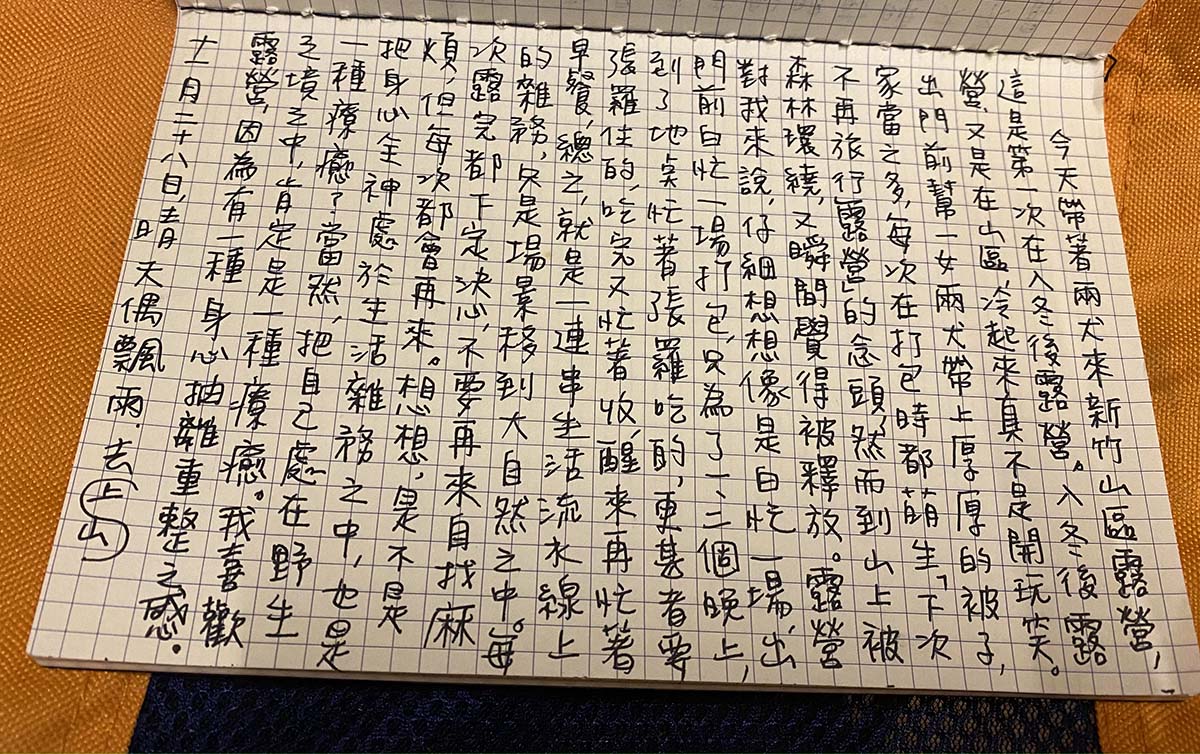 今天帶著兩犬來新竹山區露營,
這是第一次在入冬後露營。入冬後露
營,又是在山區,冷起來真不是開玩笑。
出門前幫一女兩犬帶上厚厚的被子,
家當之多,每次在打包時都萌生「下次
不再旅行露營」的念頭,然而到山上被
森林環繞,又瞬間覺得被釋放。露營
對我來說,仔細想想像是白忙一場,出
門前白忙一場打包,只為了一、二個晚上,
到了地点忙著張羅吃的,更甚者要
張羅住的,吃完又忙著收,醒來再忙著
早餐,總之,就是一連串生活流水線上
的雜務,只是場景移到大自然之中。每
次露完都下定決心,不要再來自找麻
煩,但每次都會再來。想想,是不是
把身心全神處於生活雜務之中,也是
一種療癒?當然,把自己處在野生
之境之中,肯定是一種療癒。我喜歡
露營,因為有一種身心抽離重整之感.
十一月二十八日,去月
日 天偶飄雨.去上山